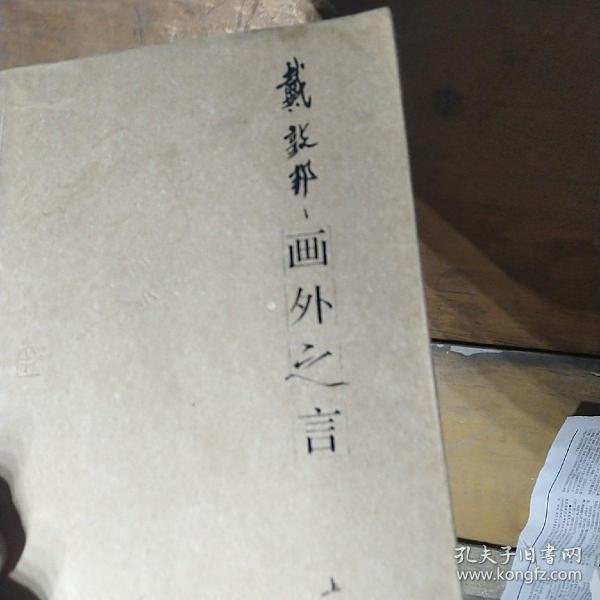 戴敦邦、画外之言
孔夫子旧書网
www.kongfz.com